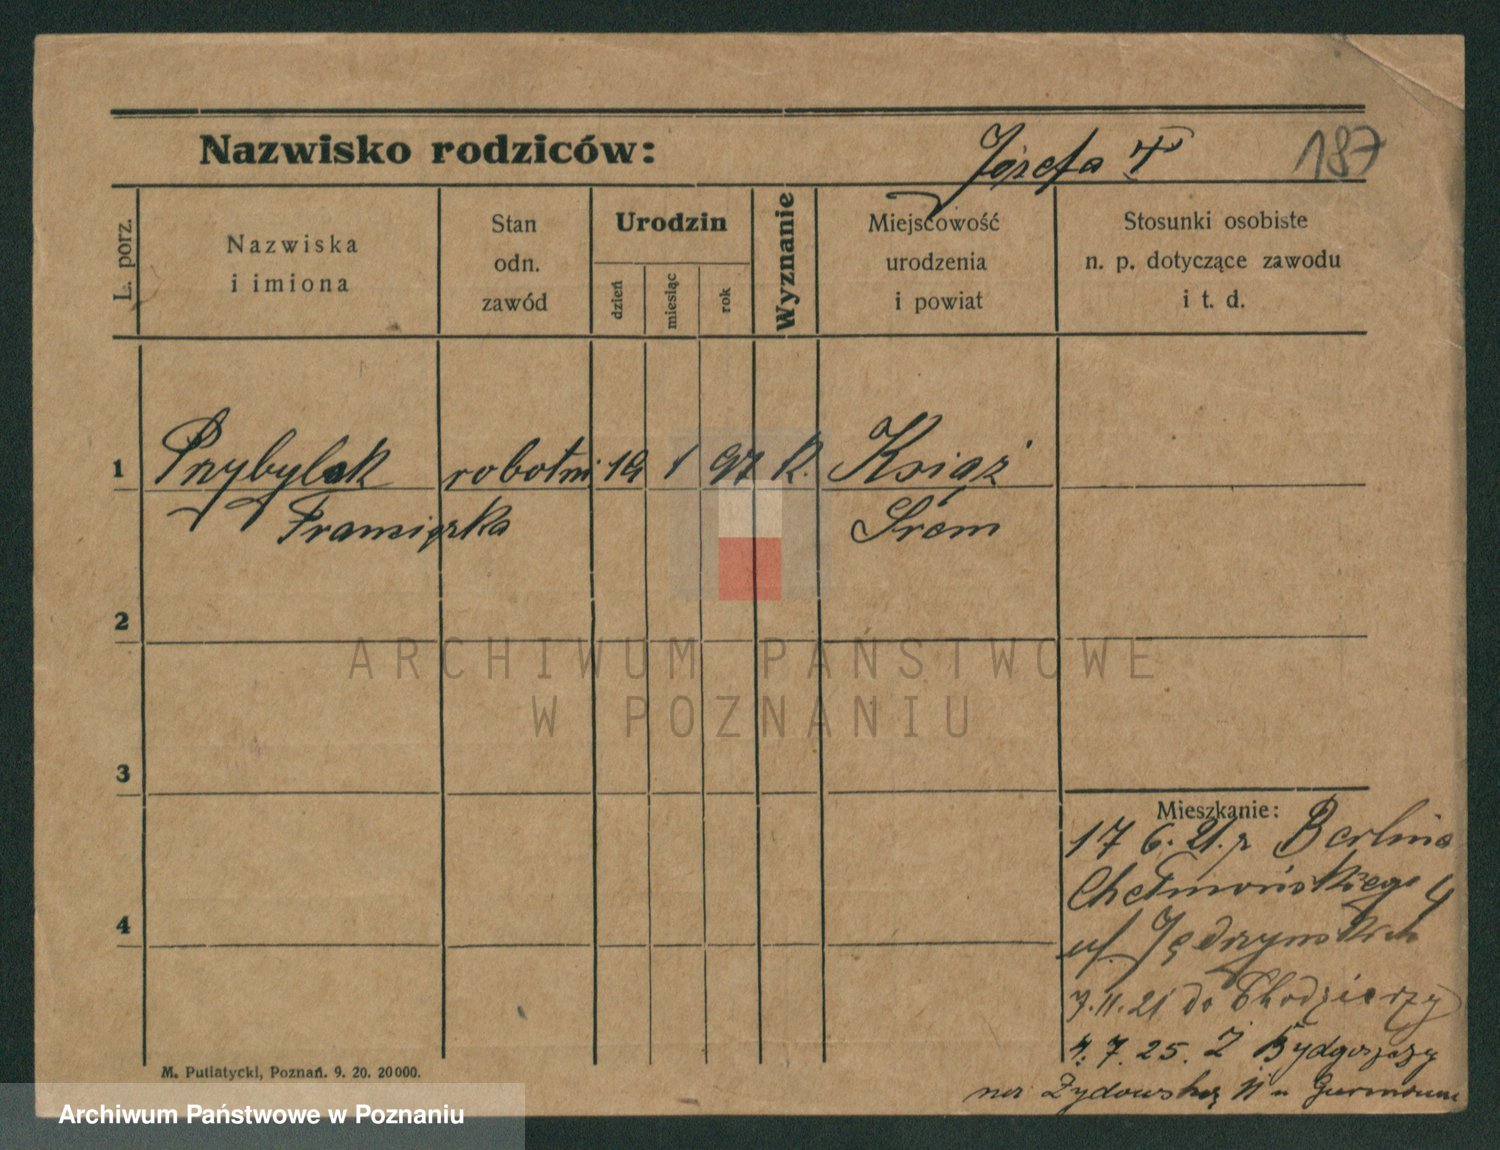 Nazwisko rodziców: Józefa F 187
L. porz.
Nazwiska
i imiona
Stan
odn.
zawód
Urodzin
dzień
miesiąc
rok
Wyznanie
Miejscowość
urodzenia
i powiat
Stosunki osobiste
n. p. dotyczące zawodu
i t. d.
1 Przybylak robotni 19 1 97 k. Książ
Franciszka Śrem
2
3
4
Mieszkanie:
17 6. 21. z Berlina
Chełmońskiego 4
7. 11. 21 do Chodzieży
4. 7. 25. Z Bydgoszczy
na Żydowską 11 u
M. Putiatycki, Poznań. 9. 20. 20000.
ARCHIWUM PAŃSTWOWE
W POZNANIU
Archiwum Państwowe w Poznaniu